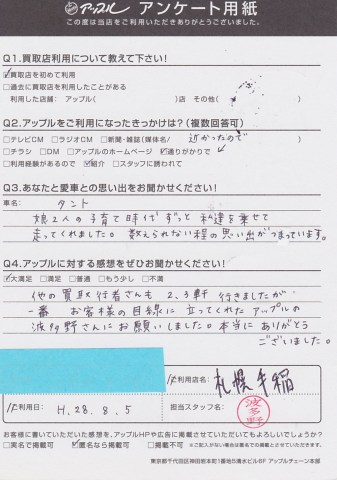 アップル アンケート用紙
この度は当店をご利用いただきありがとうございました。
Q1.買取店利用について教えて下さい!
☑買取店を初めて利用
□過去に買取店を利用したことがある
利用した店舗: アップル( )店 その他( )
Q2.アップルをご利用になったきっかけは?(複数回答可)
□テレビCM □ラジオCM □新聞・雑誌(媒体名/ 近かったので )
□チラシ □DM □アップルのホームページ ☑通りがかりで
□利用経験があるので ☑紹介 □スタッフに誘われて
Q3.あなたと愛車との思い出をお聞かせください!
車名: タント
娘2人の子育て時代ずっと私達を乗せて
走ってくれました。数えられない程の思い出がつまっています。
Q4.アップルに対する感想をぜひお聞かせください!
☑大満足 □満足 □普通 □もう少し □不満
他の買取行者さんも2、3軒行きましたが
一番お客様の目線に立ってくれたアップルの
波多野さんにお願いしました。本当にありがとう
ございました。
ご利用店名: 札幌手稲
ご利用日: H.28.8.5
担当スタッフ名: 波多野
お客様に書いていただいた感想を、アップルHPや広告に掲載させていただいてもよろしいでしょうか?
□実名で掲載可 ☑匿名なら掲載可 □掲載不可 ※ご記入がない場合は匿名での掲載とさせていただきます。
東京都千代田区神田岩本町1番地6清水ビル6F アップルチェーン本部